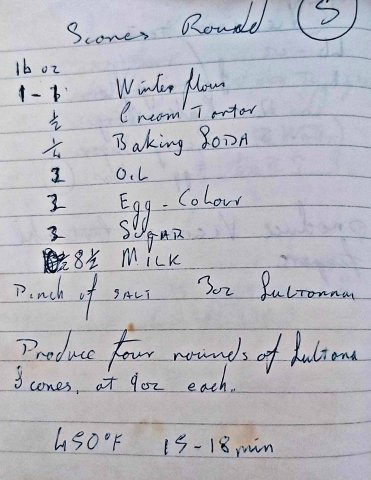 Scones Round 5
lb oz
1 - 1 Winter flour
1/2 Cream Tartar
1/4 Baking SODA
3 OIL
3 Egg - Colour
3 SUGAR
8 1/2 MILK
Pinch of SALT 3oz Sultannas
Produce four rounds of Sultana
Scones, at 9oz each.
450°F 15-18 min